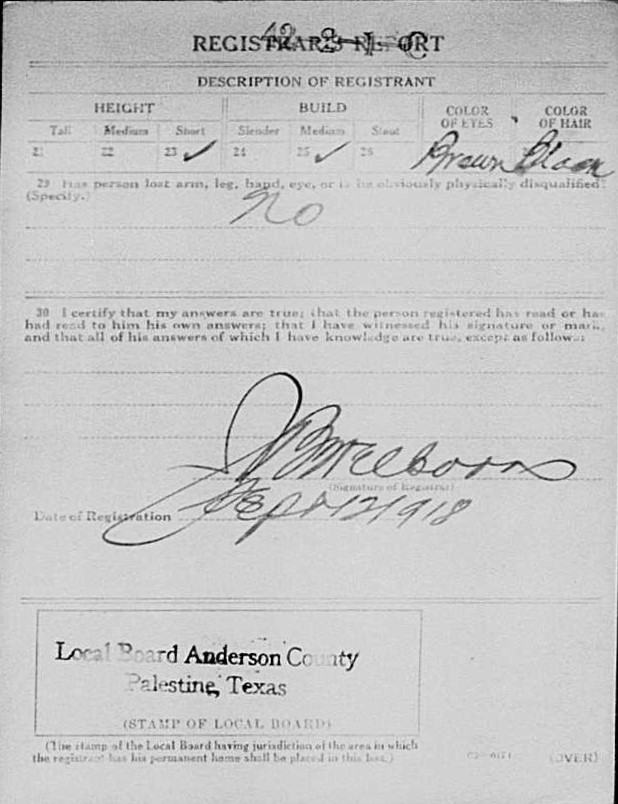 42-2-1-C
REGISTRAR'S REPORT
DESCRIPTION OF REGISTRANT
HEIGHT BUILD COLOR OF EYES COLOR OF HAIR
Tall Medium Short Slender Medium Stout
21 22 23 ✓ 24 25 ✓ 26 Brown
29 Has person lost arm, leg, hand, eye, or is he obviously physically disqualified?
(Specify.) No
30 I certify that my answers are true; that the person registered has read or has
had read to him his own answers; that I have witnessed his signature or mark,
and that all of his answers of which I have knowledge are true, except as follows:
(Signature of Registrar)
Date of Registration Sept 12 1918
Local Board Anderson County
Palestine, Texas
(STAMP OF LOCAL BOARD)
(The stamp of the Local Board having jurisdiction of the area in which
the registrant has his permanent home shall be placed in this box.)
(OVER)